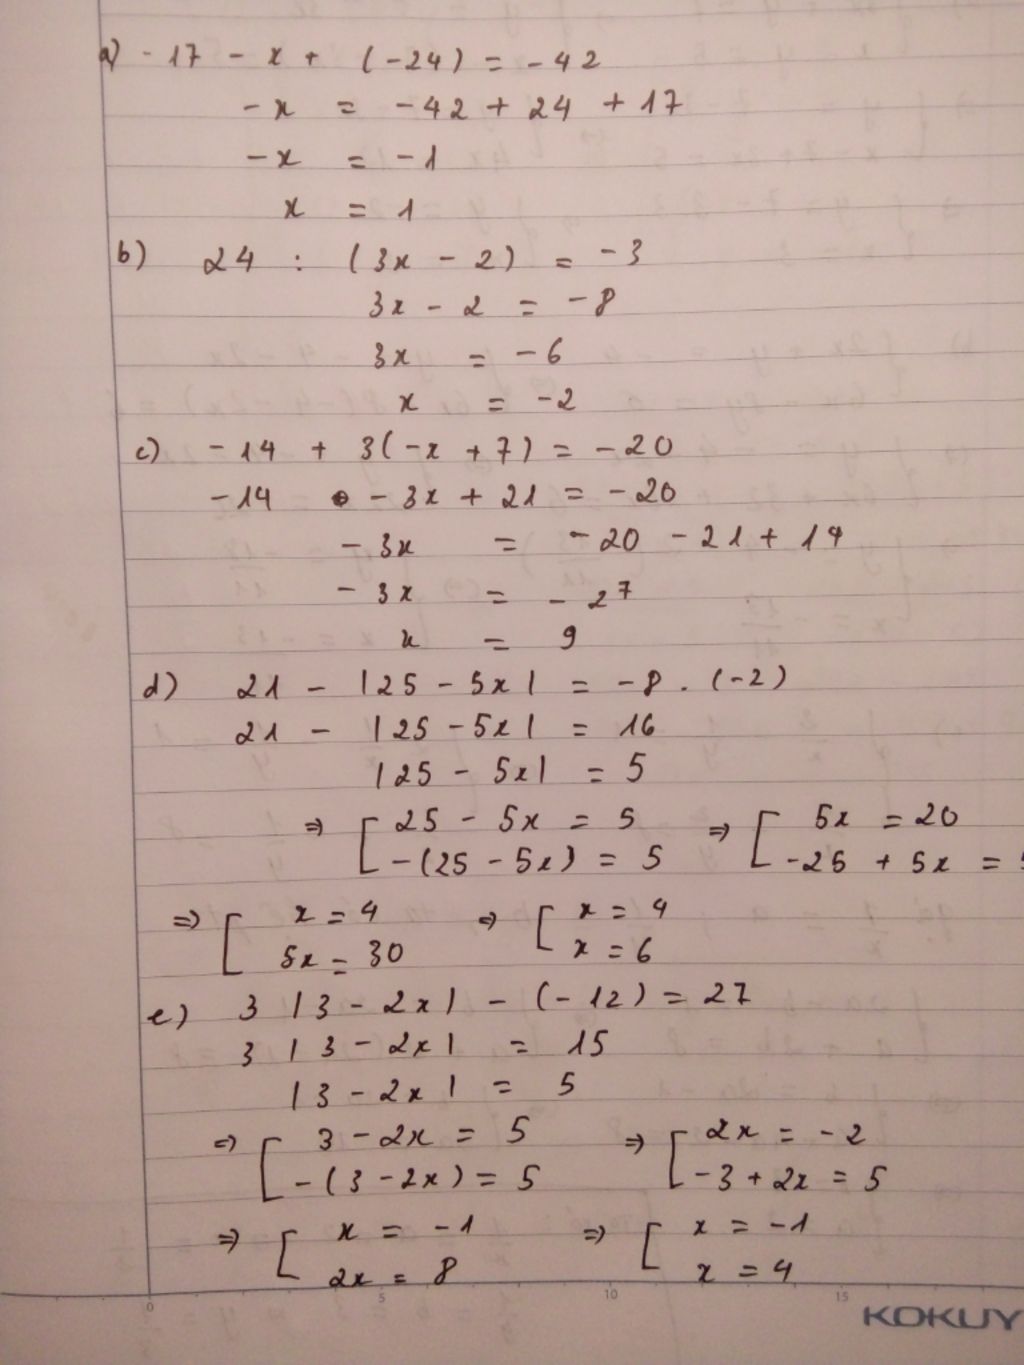 a) -17 - x + (-24) = -42
-x = -42 + 24 + 17
-x = -1
x = 1
b) 24 : (3x - 2) = -3
3x - 2 = -8
3x = -6
x = -2
c) -14 + 3(-x + 7) = -20
-14 - 3x + 21 = -20
-3x = -20 - 21 + 14
-3x = -27
x = 9
d) 21 - |25 - 5x| = -8 . (-2)
21 - |25 - 5x| = 16
|25 - 5x| = 5
⇒ [ 25 - 5x = 5 ⇒ [ 5x = 20
-(25 - 5x) = 5 -25 + 5x = 5
⇒ [ x = 4 ⇒ [ x = 4
5x = 30 x = 6
e) 3 |3 - 2x| - (-12) = 27
3 |3 - 2x| = 15
|3 - 2x| = 5
⇒ [ 3 - 2x = 5 ⇒ [ 2x = -2
-(3 - 2x) = 5 -3 + 2x = 5
⇒ [ x = -1 ⇒ [ x = -1
2x = 8 x = 4
0 5 10 15
KOKUY